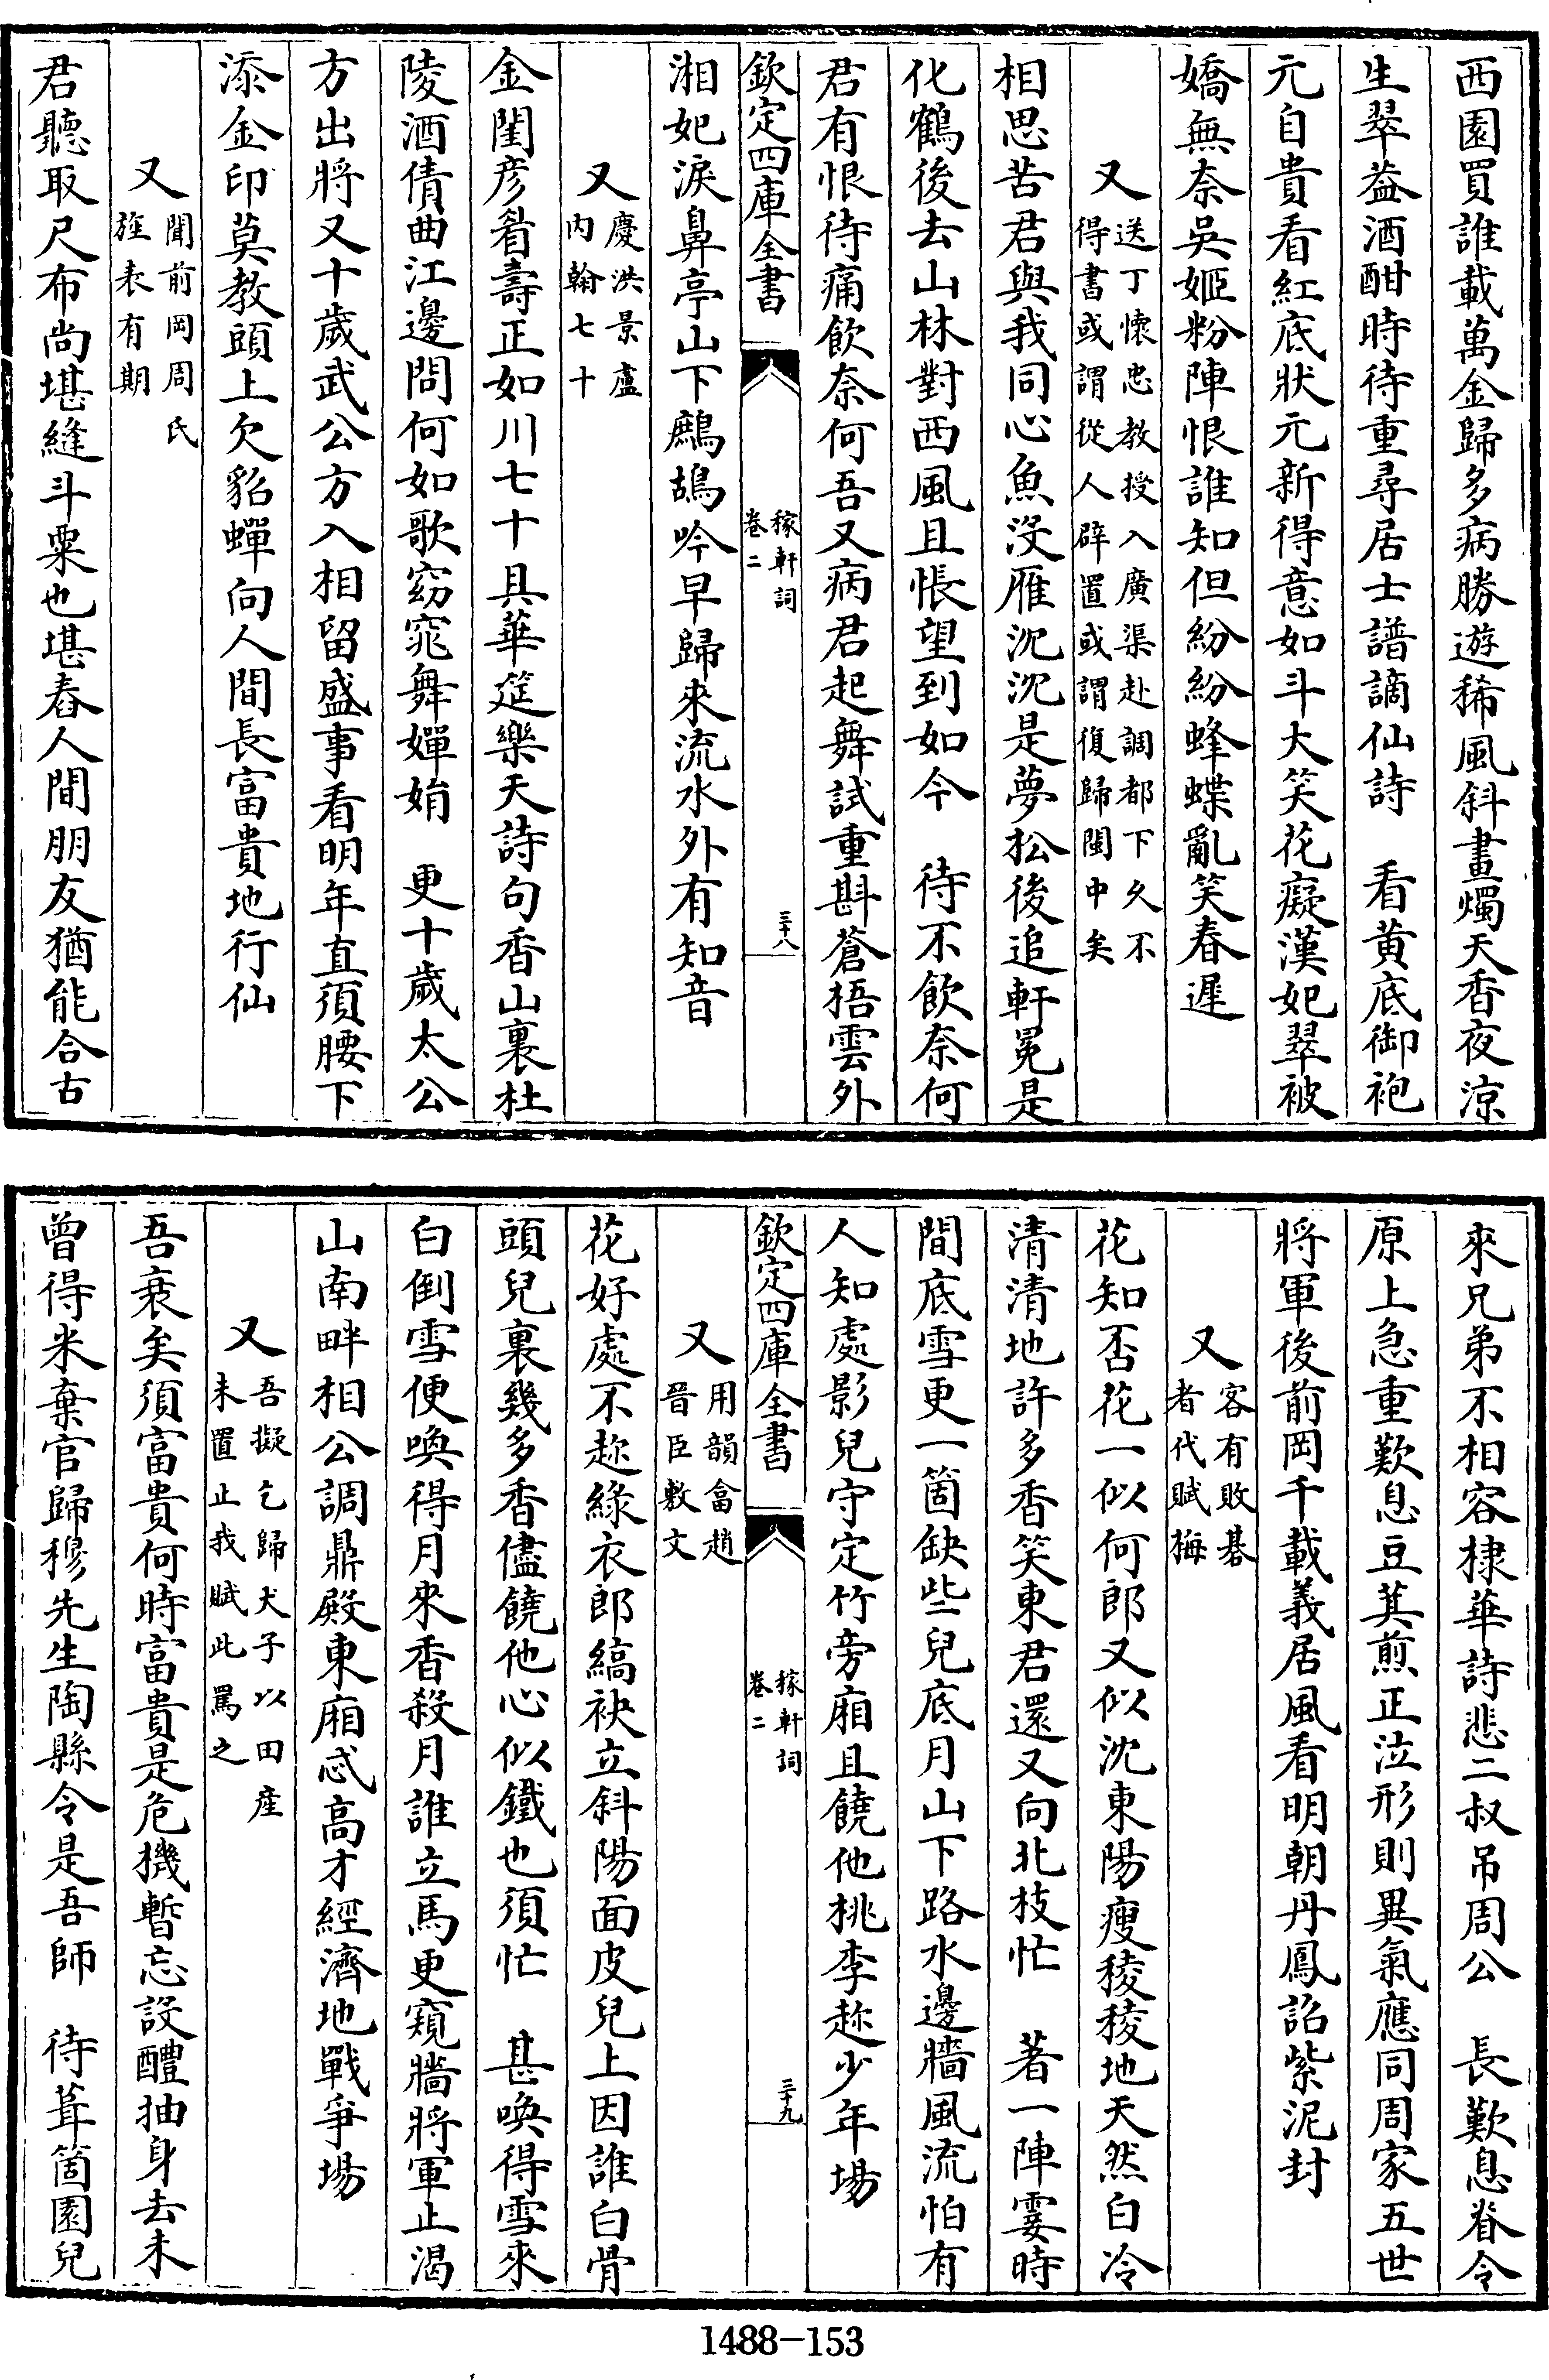 西園買誰載萬金歸多病勝遊稀風斜畫燭天香夜涼
生翠葢酒酣時待重尋居士譜謫仙詩　看黄底御袍
元自貴看紅底狀元新得意如斗大笑花癡漢妃翠被
嬌無奈吳姬粉陣恨誰知但紛紛蜂蝶亂笑春遲
又送丁懷忠教授入廣渠赴調都下久不
得書或謂從人辟置或謂復歸閩中矣
相思苦君與我同心魚沒雁沉沉是夢松後追軒冕是
化鶴後去山林對西風且悵望到如今　待不飲奈何
君有恨待痛飲奈何吾又病君起舞試重斟蒼梧雲外
欽定四庫全書
稼軒詞
卷二
三十八
湘妃淚鼻亭山下鷓鴣吟早歸來流水外有知音
又慶洪景盧
内翰七十
金閨彦着壽正如川七十具華筵樂天詩句香山裏杜
陵酒債曲江邊問何如歌窈窕舞嬋娟　更十歲太公
方出將又十歲武公方入相留盛事看明年直須腰下
添金印莫教頭上欠貂蟬向人間長富貴地行仙
又聞前岡周氏
旌表有期
君聽取尺布尚堪縫斗粟也堪舂人間朋友猶能合古
來兄弟不相容棣華詩悲二叔吊周公　長歎息脊令
原上急重歎息豆萁煎正泣形則異氣應同周家五世
將軍後前岡千載義居風看明朝丹鳳詔紫泥封
又客有敗碁
者代賦梅
花知否花一似何郎又似沈東陽瘦稜稜地天然白冷
清清地許多香笑東君還又向北枝忙　著一陣霎時
間底雪更一箇缺些兒底月山下路水邊牆風流怕有
人知處影兒守定竹旁廂且饒他桃李趂少年場
欽定四庫全書
稼軒詞
卷二
三十九
又用韻畣趙
晉臣敷文
花好處不趂緑衣郎縞袂立斜陽面皮兒上因誰白骨
頭兒裏幾多香儘饒他心似鐵也須忙　甚喚得雪來
白倒雪便喚得月來香殺月誰立馬更窺牆將軍止渴
山南畔相公調鼎殿東廂忒高才經濟地戰爭場
又吾擬乞歸犬子以田産
未置止我賦此罵之
吾衰矣須富貴何時富貴是危機暫忘設醴抽身去未
曾得米棄官歸穆先生陶縣令是吾師　待葺箇園兒
1488-153